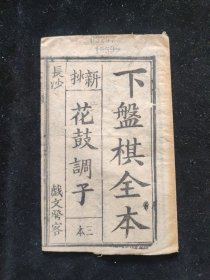 下盤棋全本
新抄
花鼓調子
三本
長沙
戯文警容